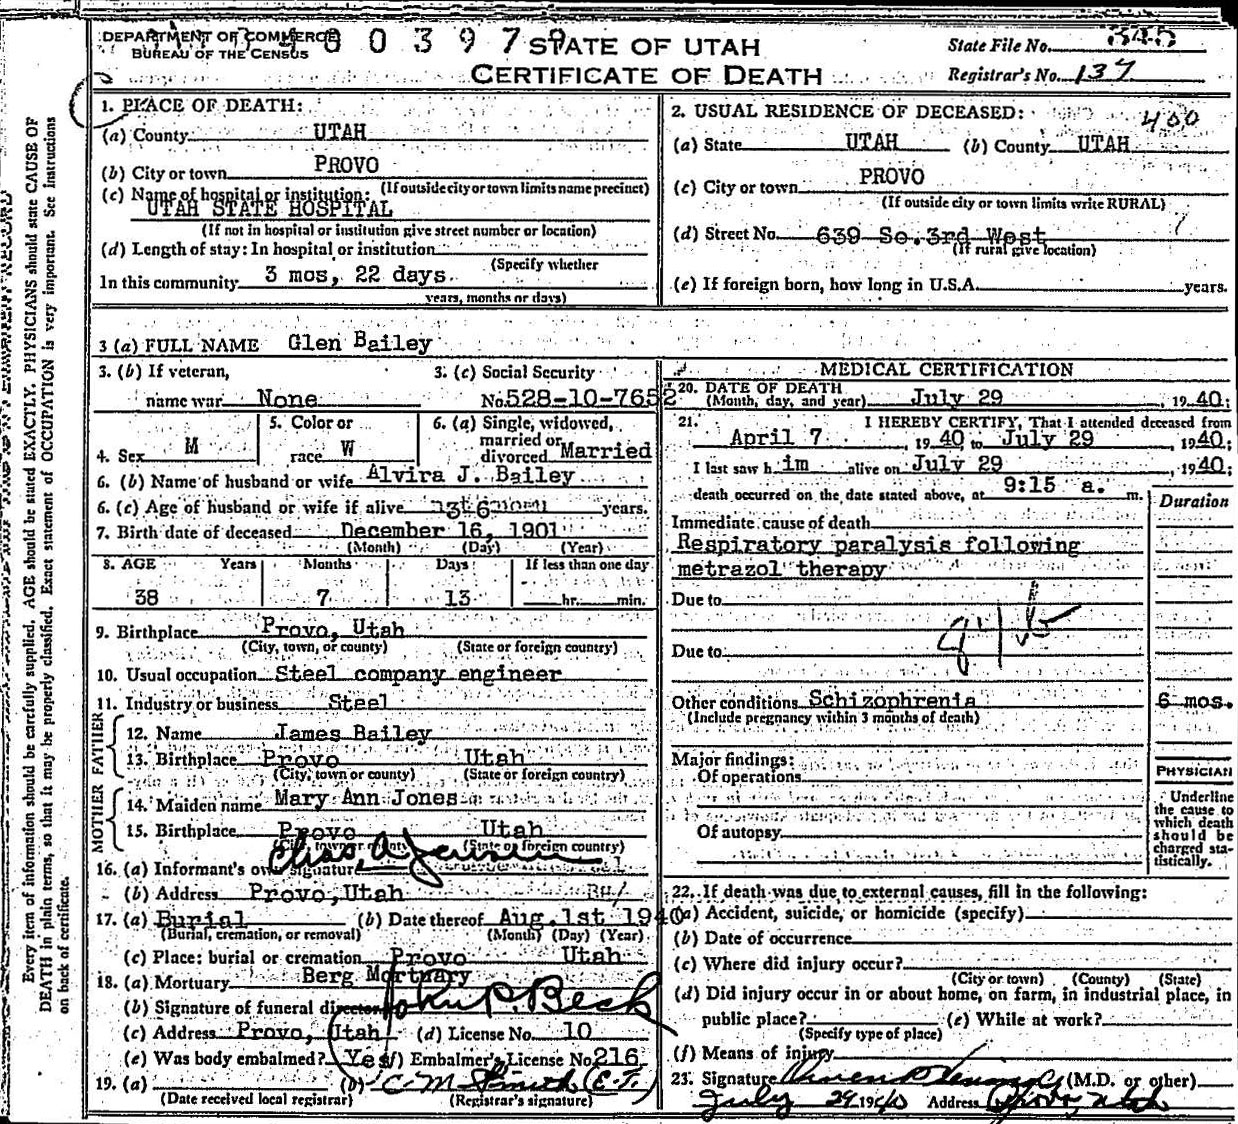 DEPARTMENT OF COMMERCE
BUREAU OF THE CENSUS
0 0 3 9 7 9
STATE OF UTAH
CERTIFICATE OF DEATH
State File No. 345
Registrar's No. 137
Every item of information should be carefully supplied. AGE should be stated EXACTLY. PHYSICIANS should state CAUSE OF
DEATH in plain terms, so that it may be properly classified. Exact statement of OCCUPATION is very important. See instructions
on back of certificate.
1. PLACE OF DEATH:
(a) County UTAH
(b) City or town PROVO
(If outside city or town limits name precinct)
(c) Name of hospital or institution:
UTAH STATE HOSPITAL
(If not in hospital or institution give street number or location)
(d) Length of stay: In hospital or institution
(Specify whether
In this community 3 mos, 22 days
years, months or days)
2. USUAL RESIDENCE OF DECEASED: 400
(a) State UTAH (b) County UTAH
(c) City or town PROVO
(If outside city or town limits write RURAL)
(d) Street No. 639 So. 3rd West
(If rural give location)
(e) If foreign born, how long in U.S.A. years.
3 (a) FULL NAME Glen Bailey
3. (b) If veteran,
name war None
3. (c) Social Security
No. 528-10-7652
4. Sex M
5. Color or
race W
6. (a) Single, widowed,
married or
divorced Married
6. (b) Name of husband or wife Alvira J. Bailey
6. (c) Age of husband or wife if alive years.
7. Birth date of deceased December 16, 1901
(Month) (Day) (Year)
8. AGE Years Months Days If less than one day
38 7 13 hr. min.
9. Birthplace Provo, Utah
(City, town, or county) (State or foreign country)
10. Usual occupation Steel company engineer
11. Industry or business Steel
FATHER
12. Name James Bailey
13. Birthplace Provo Utah
(City, town or county) (State or foreign country)
MOTHER
14. Maiden name Mary Ann Jones
15. Birthplace Provo Utah
(City, town or county) (State or foreign country)
16. (a) Informant's own signature Chas. A. Jensen
(b) Address Provo, Utah
17. (a) Burial (b) Date thereof Aug. 1st 1940
(Burial, cremation, or removal) (Month) (Day) (Year)
(c) Place: burial or cremation Provo Utah
18. (a) Mortuary Berg Mortuary
(b) Signature of funeral director John P. Beck
(c) Address Provo, Utah (d) License No. 10
(e) Was body embalmed? Yes (f) Embalmer's License No. 216
19. (a) (b) C. M. Smith (E.F.)
(Date received local registrar) (Registrar's signature)
MEDICAL CERTIFICATION
20. DATE OF DEATH
(Month, day, and year) July 29, 1940;
21. I HEREBY CERTIFY, That I attended deceased from
April 7, 1940 to July 29, 1940;
I last saw him alive on July 29, 1940;
death occurred on the date stated above, at 9:15 a. m.
Duration
Immediate cause of death
Respiratory paralysis following
metrazol therapy
Due to
Due to
Other conditions Schizophrenia 6 mos.
(Include pregnancy within 3 months of death)
Major findings:
Of operations
Of autopsy
PHYSICIAN
Underline
the cause to
which death
should be
charged sta-
tistically.
22. If death was due to external causes, fill in the following:
(a) Accident, suicide, or homicide (specify)
(b) Date of occurrence
(c) Where did injury occur?
(City or town) (County) (State)
(d) Did injury occur in or about home, on farm, in industrial place, in
public place? (e) While at work?
(Specify type of place)
(f) Means of injury
23. Signature (M.D. or other)
July 29 1940 Address Provo, Utah